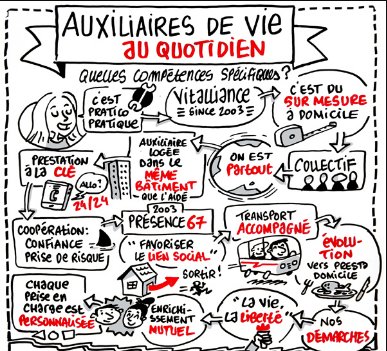 AUXILIAIRES DE VIE
AU QUOTIDIEN
QUELLES COMPÉTENCES SPÉCIFIQUES ?
C'EST
PRATICO
PRATIQUE
VITALLIANCE
SINCE 2003
C'EST DU
SUR MESURE
À DOMICILE
COLLECTIF
ON EST
PARTOUT
AUXILIAIRE
LOGÉE
DANS LE
MÊME
BÂTIMENT
QUE L'AIDÉ
PRESTATION
À LA CLÉ
ALLO?
24/24
COOPÉRATION:
CONFIANCE
PRISE DE RISQUE
2003
PRÉSENCE 67
"FAVORISER
LE LIEN SOCIAL"
SORTIR!
TRANSPORT
ACCOMPAGNÉ
ÉVOLU-
TION
VERS PRESTA
DOMICILE
NOS
DÉMARCHES
"LA VIE,
LA LIBERTÉ"
ENRICHI-
SSEMENT
MUTUEL
CHAQUE
PRISE EN
CHARGE EST
PERSONNALISÉE